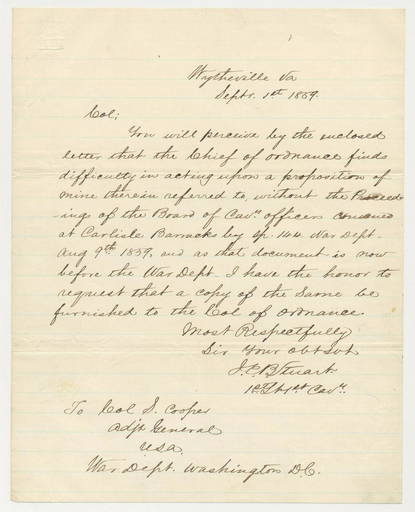 Wytheville Va
Septr. 1st 1859.
Col;
You will perceive by the enclosed
letter that the Chief of ordnance finds
difficulty in acting upon a proposition of
mine therein referred to, without the Proceed-
ings of the Board of Cavy. officers convened
at Carlisle Barracks by Sp. 144 War Dept.
Aug 9th 1859, and as that document is now
before the War Dept. I have the honor to
request that a copy of the same be
furnished to the Col of Ordnance.
Most Respectfully
Sir Your Obt Svt
J.E.B. Stuart
1st Lt 1st Cavy.
To Col S. Cooper
Adjt General
U.S.A.
War Dept. Washington D.C.